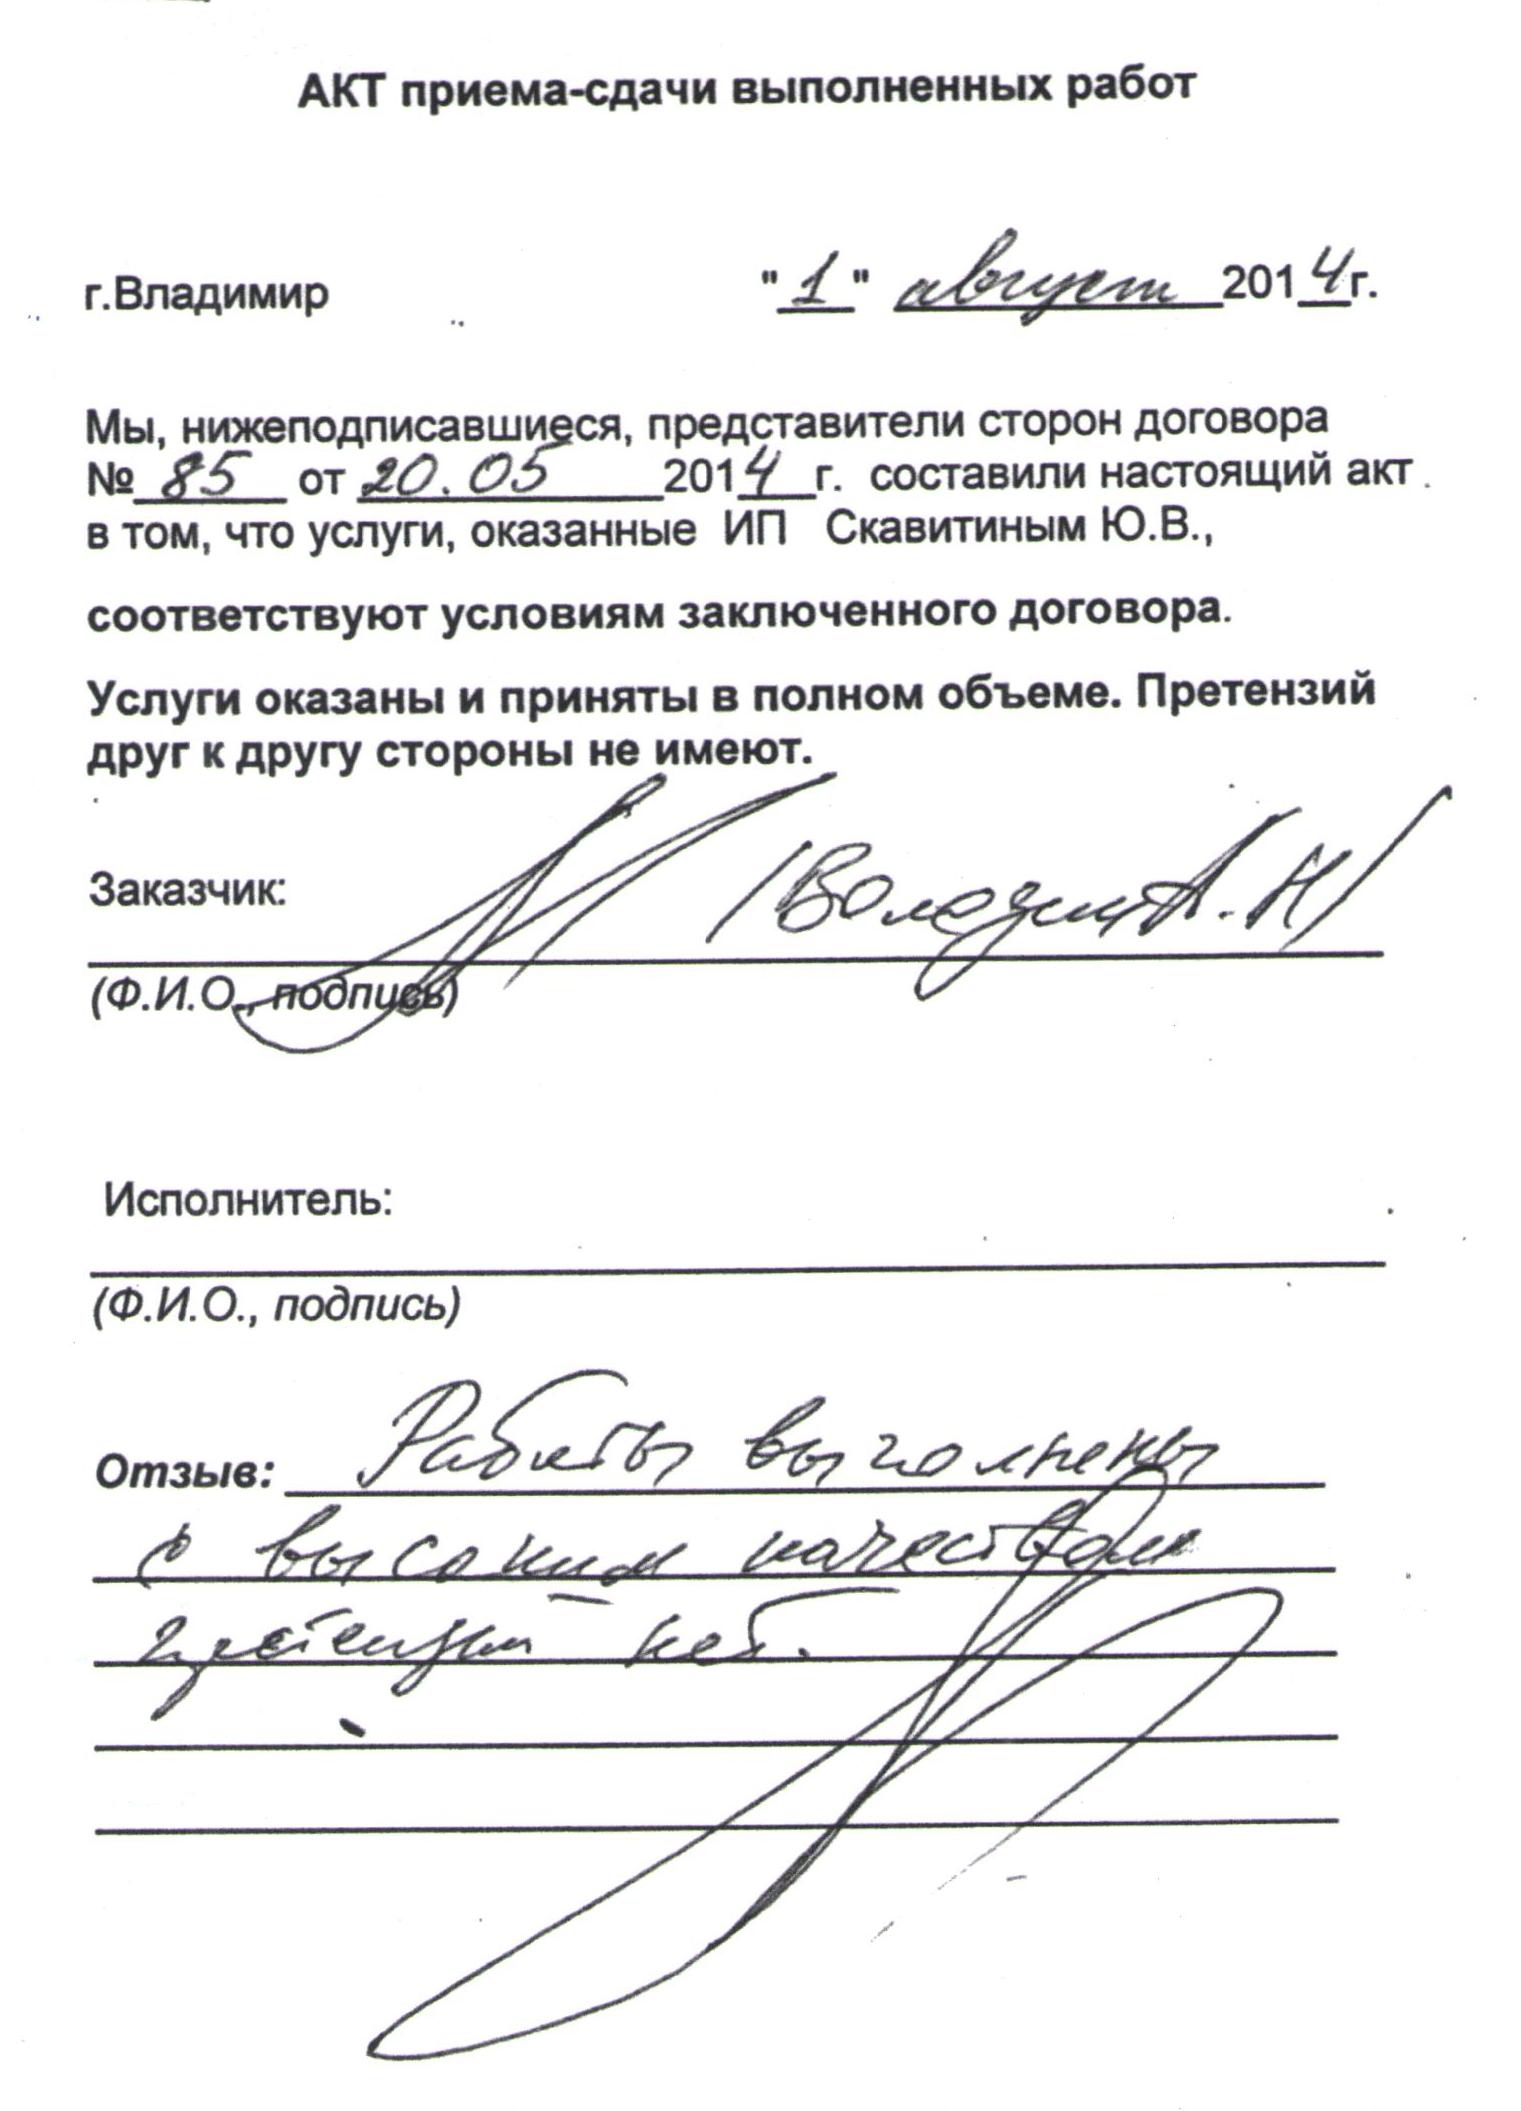 АКТ приема-сдачи выполненных работ
г.Владимир "1" август 2014г.
Мы, нижеподписавшиеся, представители сторон договора
№ 85 от 20.05 2014 г. составили настоящий акт
в том, что услуги, оказанные ИП Скавитиным Ю.В.,
соответствуют условиям заключенного договора.
Услуги оказаны и приняты в полном объеме. Претензий
друг к другу стороны не имеют.
Заказчик: А.Н/
(Ф.И.О., подпись)
Исполнитель:
(Ф.И.О., подпись)
Отзыв: Работы выполнены
с высоким качеством
претензий нет.